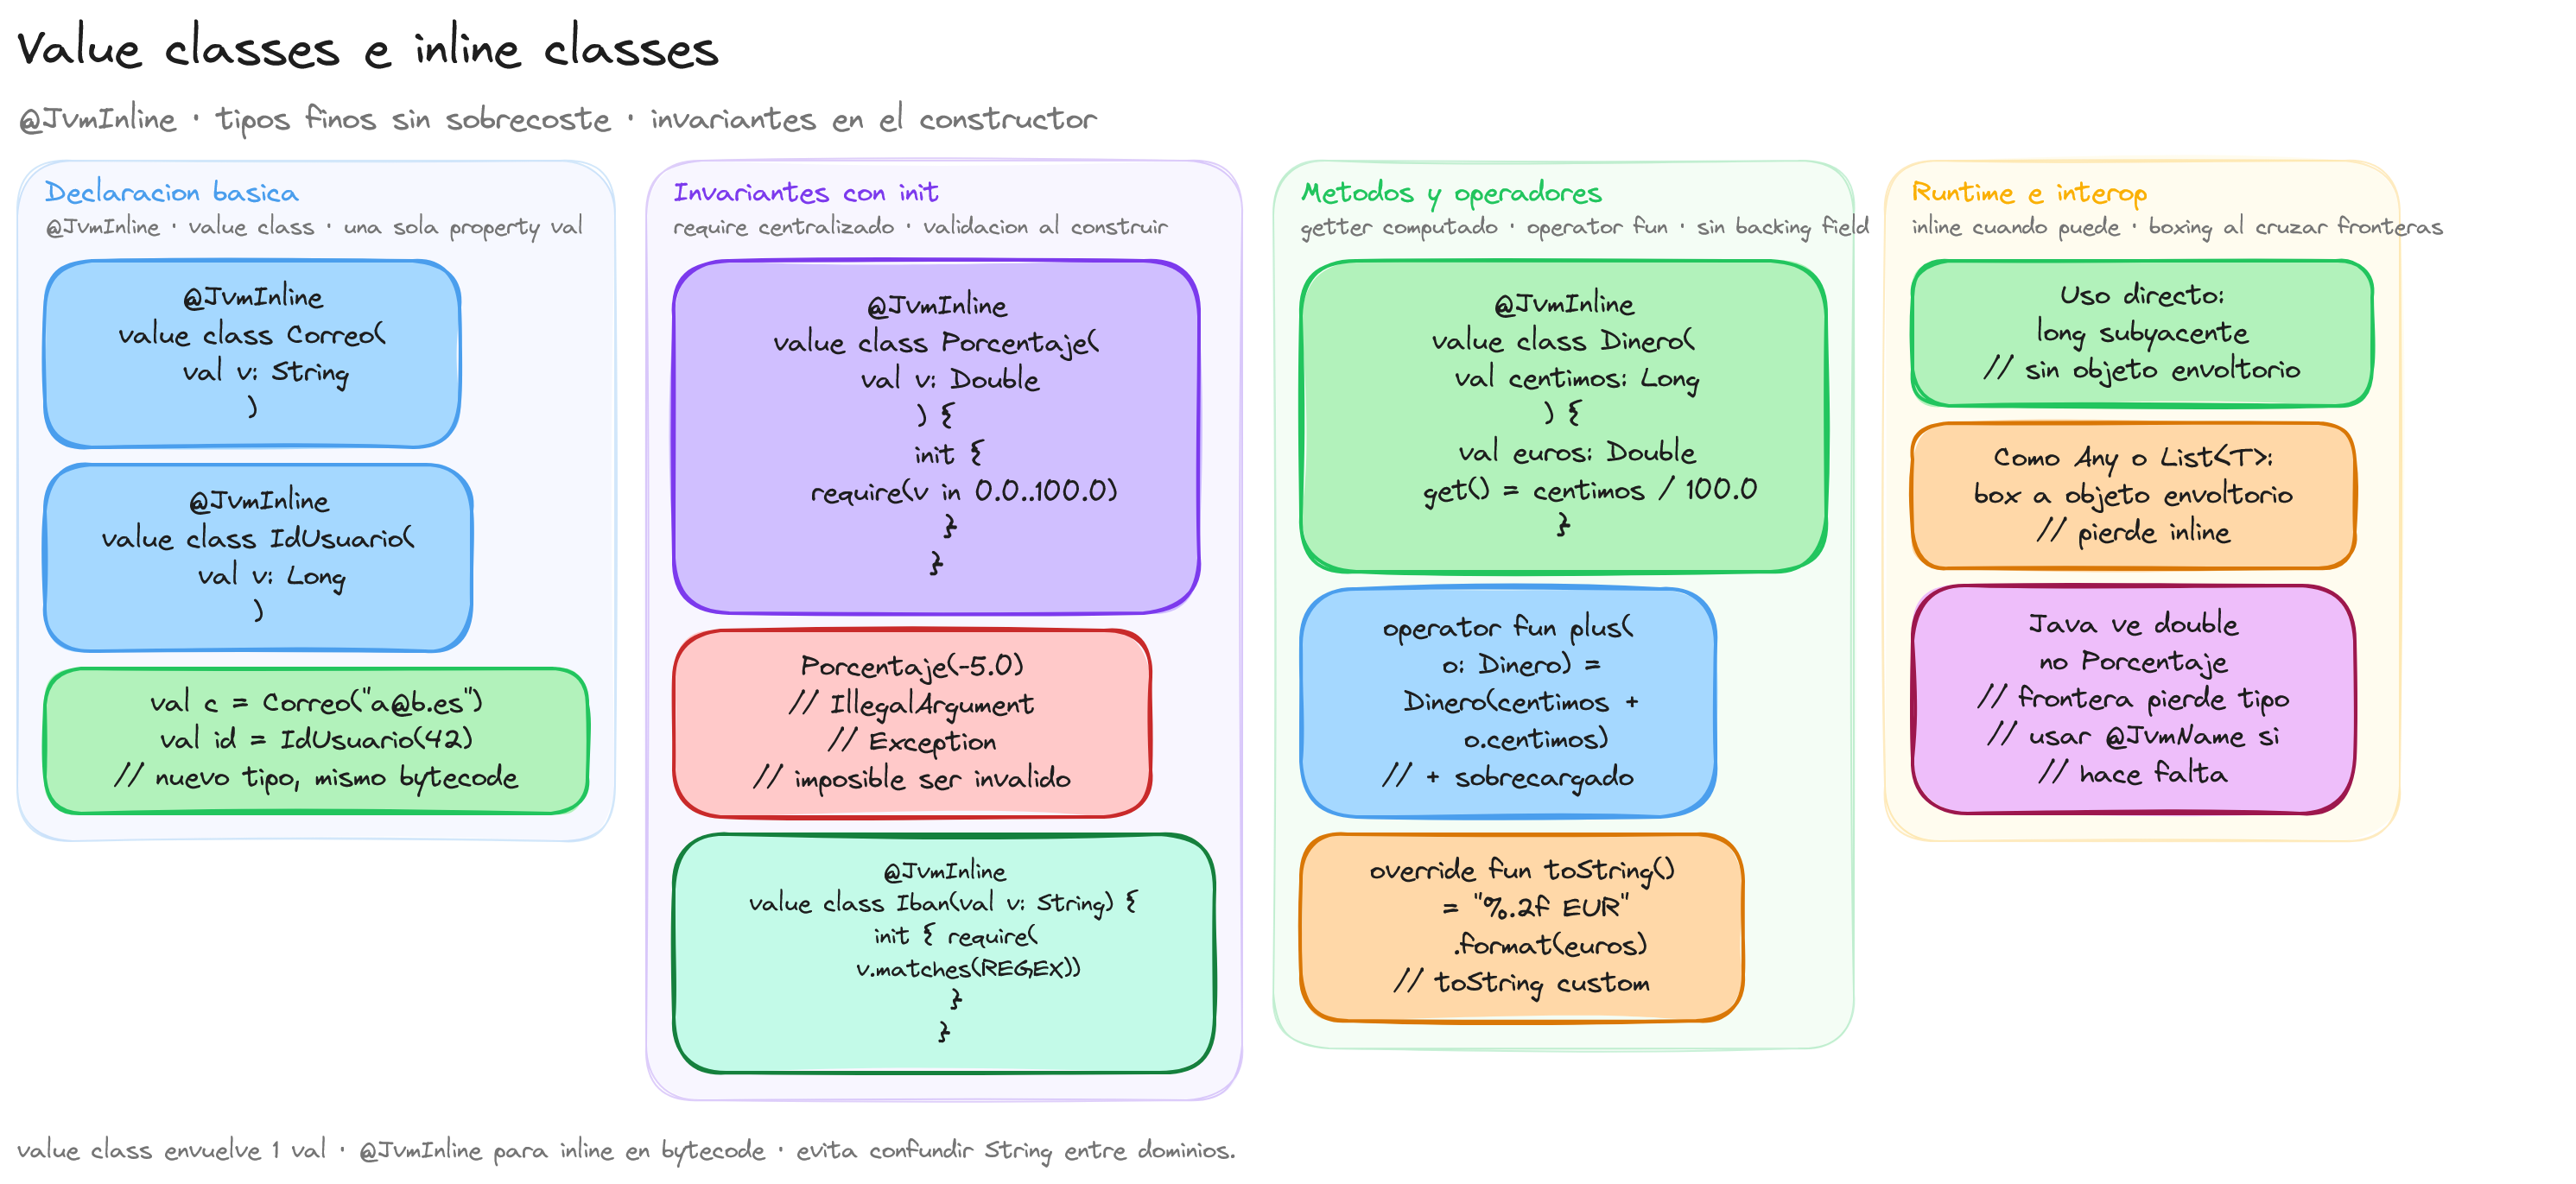 Value classes e inline classes
@JvmInline · tipos finos sin sobrecoste · invariantes en el constructor
Declaracion basica
@JvmInline · value class · una sola property val
@JvmInline
value class Correo(
val v: String
)
@JvmInline
value class IdUsuario(
val v: Long
)
val c = Correo("a@b.es")
val id = IdUsuario(42)
// nuevo tipo, mismo bytecode
Invariantes con init
require centralizado · validacion al construir
@JvmInline
value class Porcentaje(
val v: Double
) {
init {
require(v in 0.0..100.0)
}
}
Porcentaje(-5.0)
// IllegalArgument
// Exception
// imposible ser invalido
@JvmInline
value class Iban(val v: String) {
init { require(
v.matches(REGEX))
}
}
Metodos y operadores
getter computado · operator fun · sin backing field
@JvmInline
value class Dinero(
val centimos: Long
) {
val euros: Double
get() = centimos / 100.0
}
operator fun plus(
o: Dinero) =
Dinero(centimos +
o.centimos)
// + sobrecargado
override fun toString()
= "%.2f EUR"
.format(euros)
// toString custom
Runtime e interop
inline cuando puede · boxing al cruzar fronteras
Uso directo:
long subyacente
// sin objeto envoltorio
Como Any o List<T>:
box a objeto envoltorio
// pierde inline
Java ve double
no Porcentaje
// frontera pierde tipo
// usar @JvmName si
// hace falta
value class envuelve 1 val · @JvmInline para inline en bytecode · evita confundir String entre dominios.